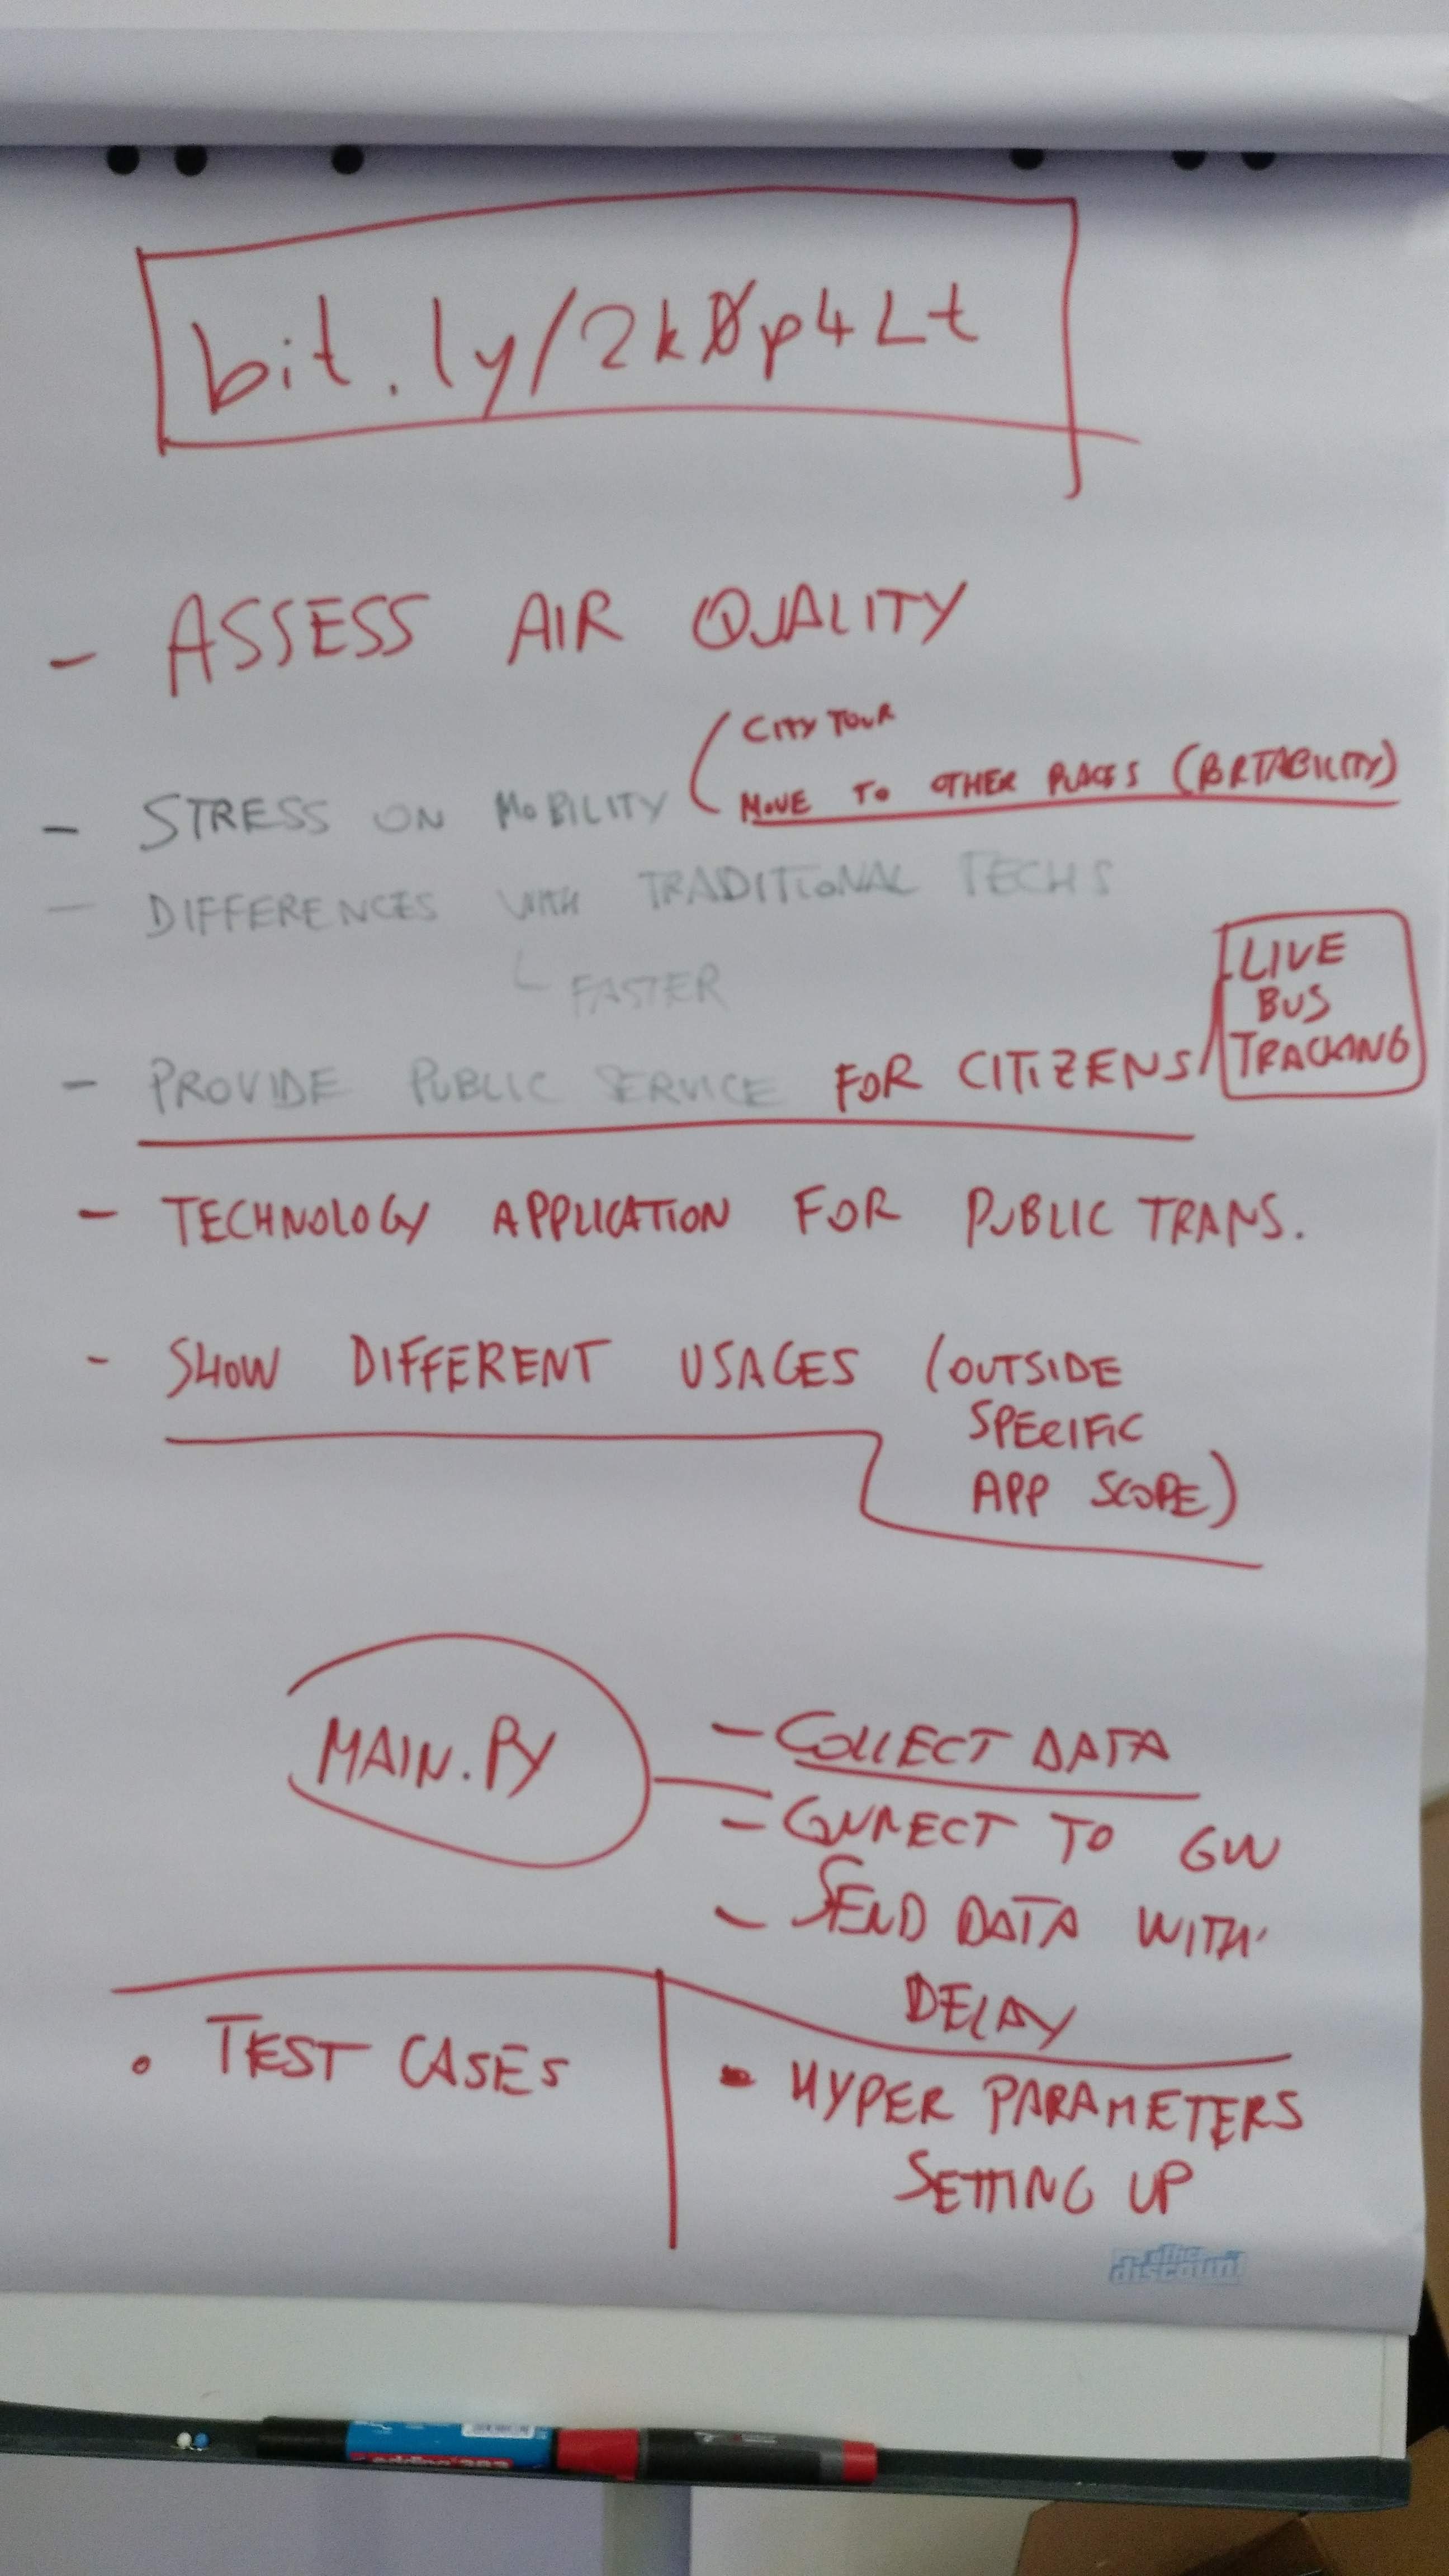 bit.ly/2k0p4Lt
- ASSESS AIR QUALITY
- STRESS ON MOBILITY
CITY TOUR
MOVE TO OTHER PLACES (PORTABILITY)
- DIFFERENCES WITH TRADITIONAL TECHS
FASTER
- PROVIDE PUBLIC SERVICE FOR CITIZENS
LIVE
BUS
TRACKING
- TECHNOLOGY APPLICATION FOR PUBLIC TRANS.
- SHOW DIFFERENT USAGES (OUTSIDE
SPECIFIC
APP SCOPE)
MAIN.PY
- COLLECT DATA
- CONNECT TO GW
- SEND DATA WITH
DELAY
• TEST CASES
• HYPER PARAMETERS
SETTING UP
office
discount